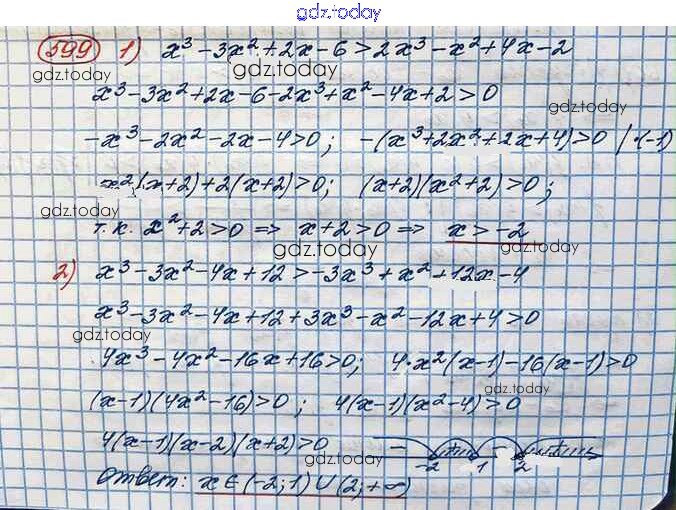 gdz.today
599 1) x³ - 3x² + 2x - 6 > 2x³ - x² + 4x - 2
gdz.today gdz.today
x³ - 3x² + 2x - 6 - 2x³ + x² - 4x + 2 > 0
gdz.today
-x³ - 2x² - 2x - 4 > 0; -(x³ + 2x² + 2x + 4) > 0 | ·(-1)
x²(x+2) + 2(x+2) > 0; (x+2)(x²+2) > 0;
gdz.today
т.к. x² + 2 > 0 => x + 2 > 0 => x > -2
gdz.today
2) x³ - 3x² - 4x + 12 > -3x³ + x² + 12x - 4
x³ - 3x² - 4x + 12 + 3x³ - x² - 12x + 4 > 0
gdz.today
4x³ - 4x² - 16x + 16 > 0; 4·x²(x-1) - 16(x-1) > 0
gdz.today
(x-1)(4x² - 16) > 0; 4(x-1)(x²-4) > 0
4(x-1)(x-2)(x+2) > 0 - + - +
gdz.today -2 1 2
Ответ: x ∈ (-2; 1) ∪ (2; +∞)